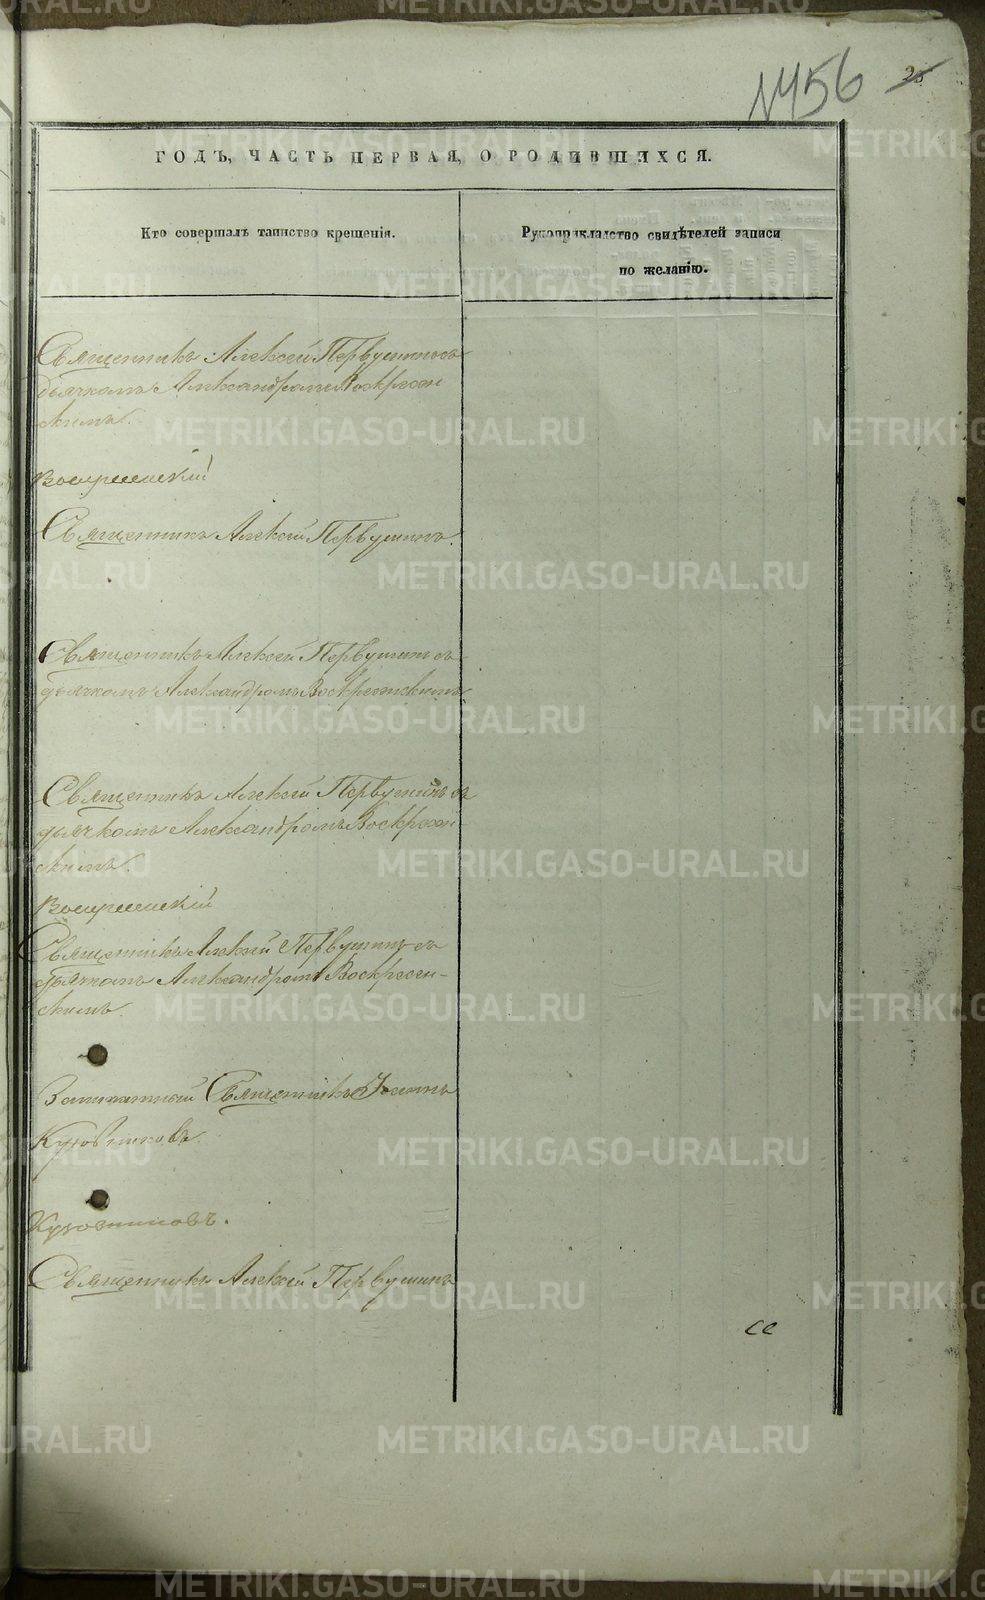 N 456 25
ГОДЪ, ЧАСТЬ ПЕРВАЯ, О РОДИВШИХСЯ.
Кто совершалъ таинство крещенія.
Рукоприкладство свидѣтелей записи
по желанію.
Священникъ Алексѣй Первушинъ съ
дьячкомъ Александромъ Воскресен
скимъ.
Воскресенскій
Священникъ Алексѣй Первушинъ.
Священникъ Алексѣй Первушинъ съ
дьячкомъ Александромъ Воскресенскимъ
Священникъ Алексѣй Первушинъ съ
дьячкомъ Александромъ Воскресен-
скимъ.
Воскресенскій
Священникъ Алексѣй Первушинъ съ
дьячкомъ Александромъ Воскресен-
скимъ.
Заштатный Священникъ Іоаннъ
Кузовниковъ.
Кузовниковъ.
Священникъ Алексѣй Первушинъ
METRIKI.GASO-URAL.RU